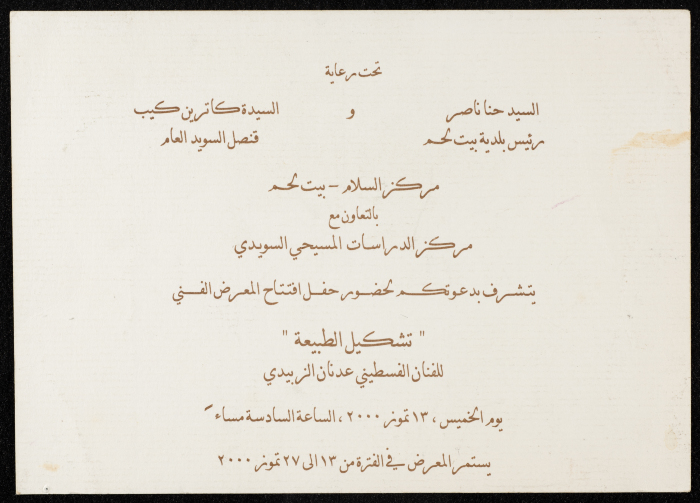 تحت رعاية
السيد حنا ناصر و السيدة كاترين كيب
رئيس بلدية بيت لحم قنصل السويد العام
مركز السلام - بيت لحم
بالتعاون مع
مركز الدراسات المسيحي السويدي
يتشرف بدعوتكم لحضور حفل افتتاح المعرض الفني
" تشكيل الطبيعة "
للفنان الفسطيني عدنان الزبيدي
يوم الخميس ، ١٣ تموز ٢٠٠٠ ، الساعة السادسة مساءً
يستمر المعرض في الفترة من ١٣ الى ٢٧ تموز ٢٠٠٠